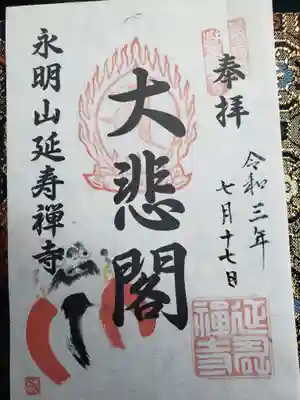 奉拝
令和三年
七月十七日
大悲閣
永明山延寿禅寺
延寿禅寺